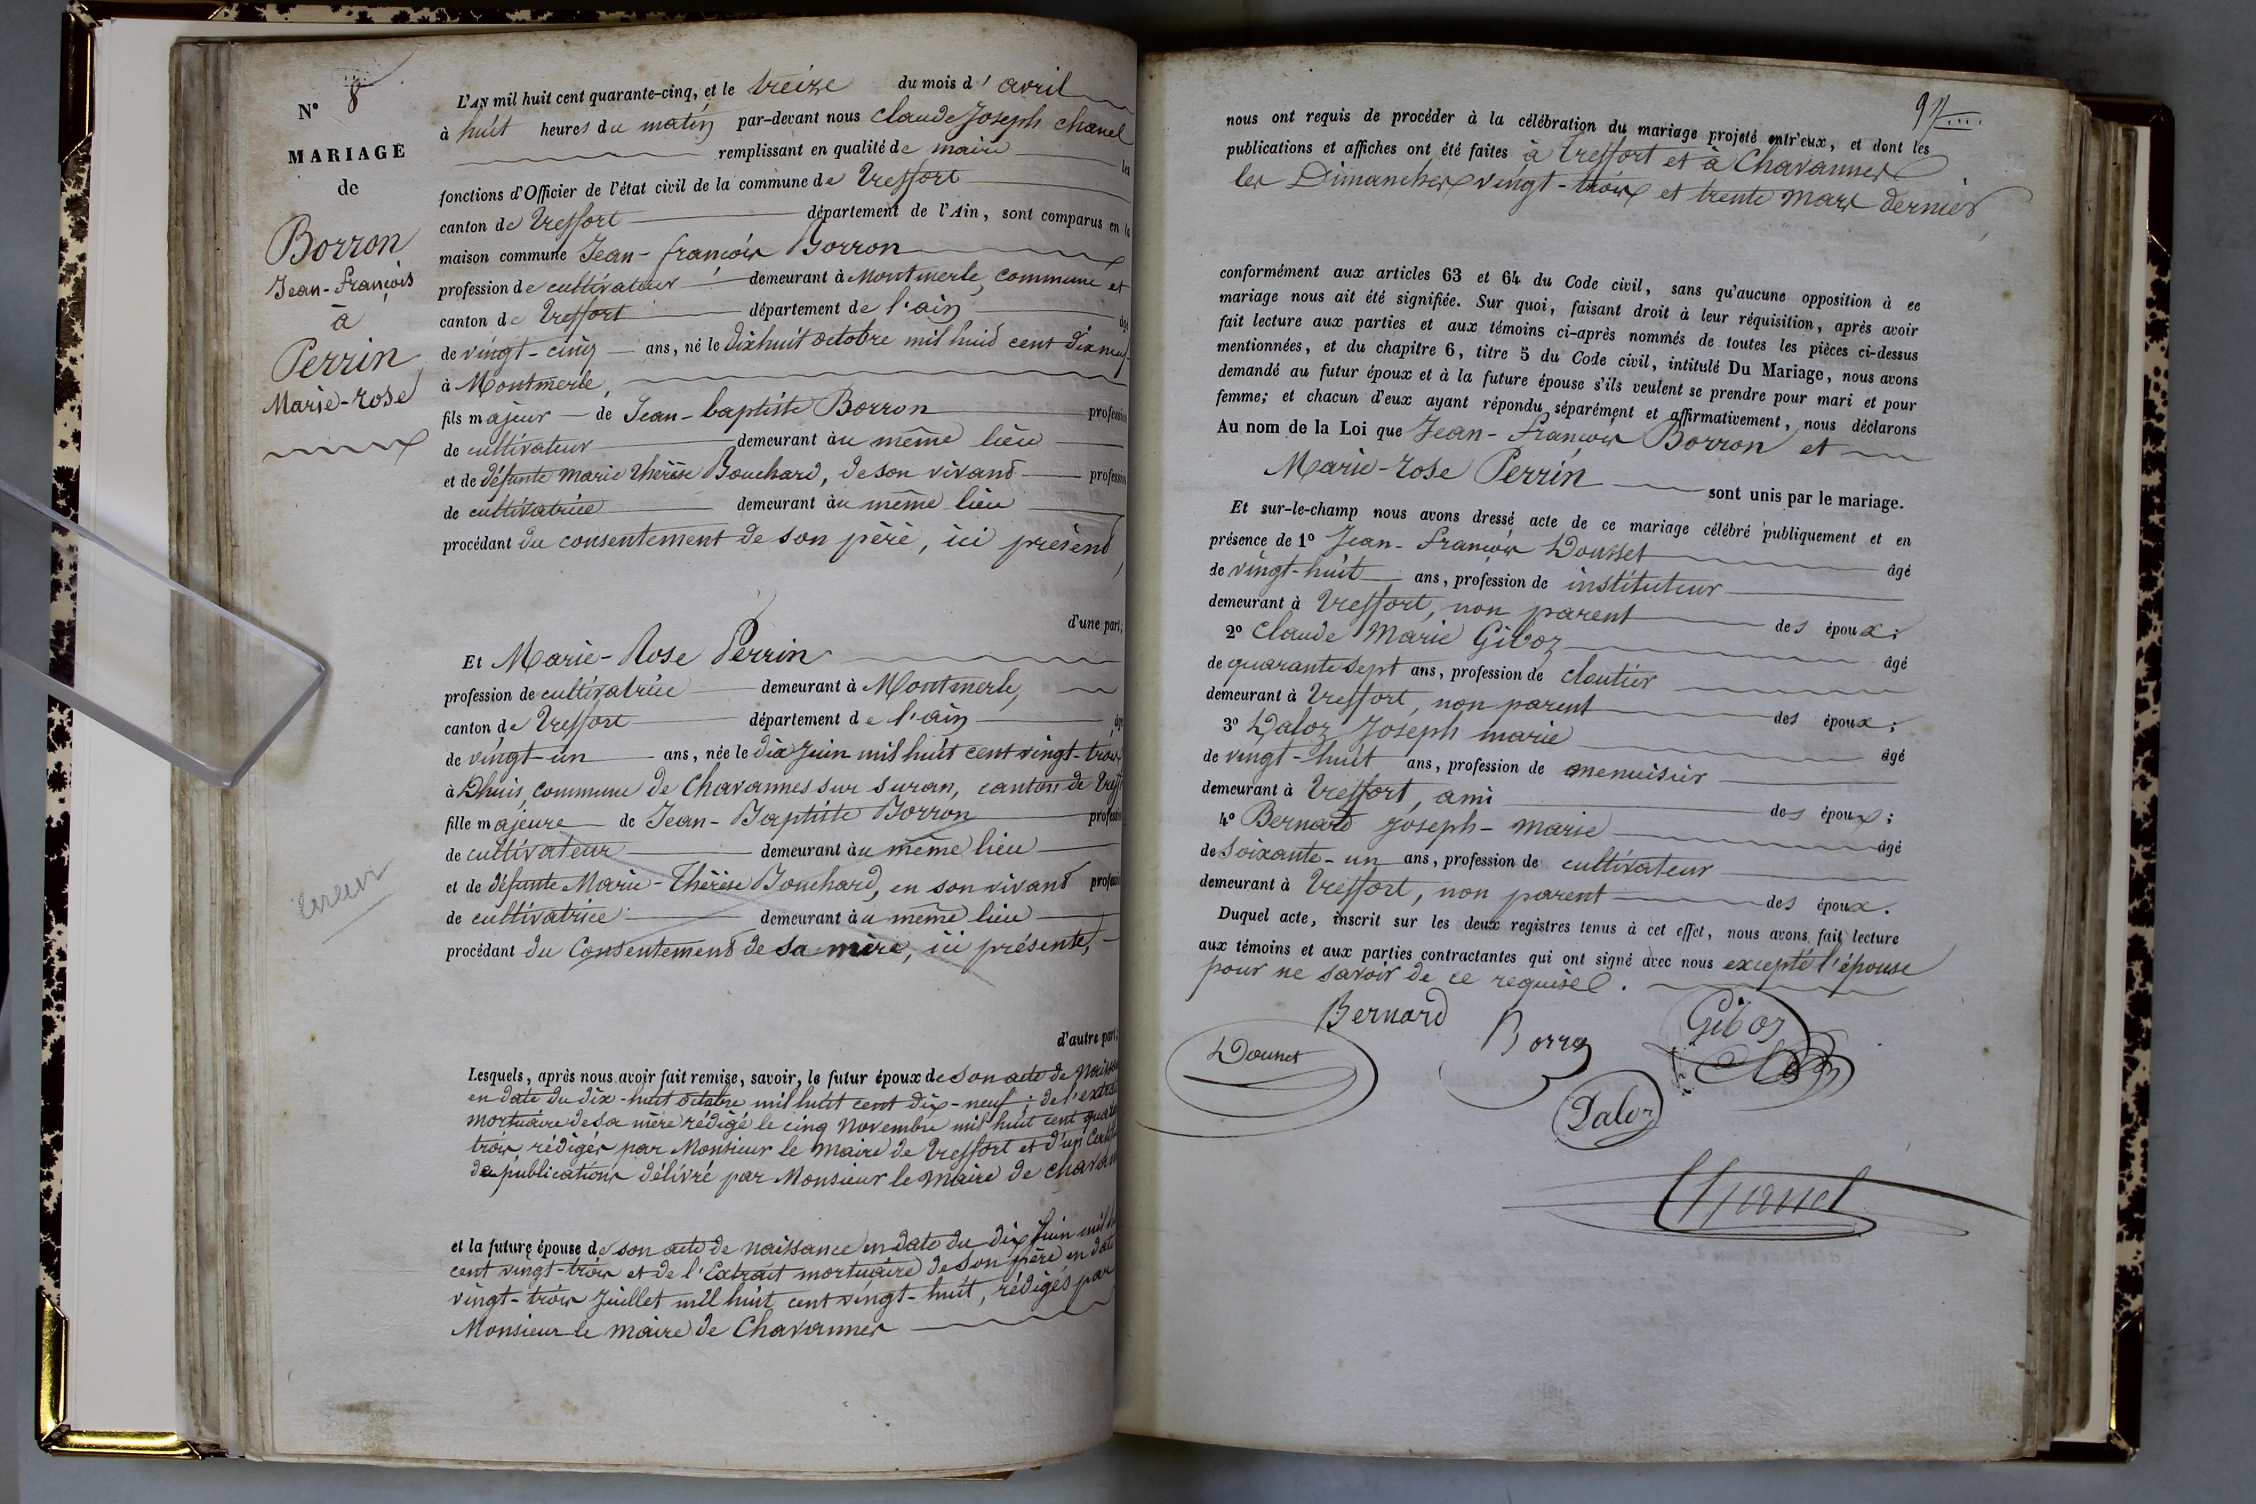 N° 8
MARIAGE
de
Borron
Jean-françois
à
Perrin
Marie-rose
Erreur
L'AN mil huit cent quarante-cinq, et le treize du mois d'avril
à huit heures du matin par-devant nous Claude Joseph Chanel
remplissant en qualité de maire les
fonctions d'Officier de l'état civil de la commune de Treffort
canton de Treffort département de l'Ain, sont comparus en la
maison commune Jean-françois Borron
profession de cultivateur demeurant à Montmerle, commune et
canton de Treffort département de l'ain âgé
de vingt-cinq ans, né le dix huit octobre mil huit cent dix neuf
à Montmerle,
fils majeur de Jean-baptiste Borron profession
de cultivateur demeurant au même lieu
et de défunte marie thérèse Bouchard, de son vivant profession
de cultivatrice demeurant au même lieu
procédant du consentement de son père, ici présent,
d'une part;
Et Marie-Rose Perrin
profession de cultivatrice demeurant à Montmerle,
canton de Treffort département de l'ain âgé
de vingt-un ans, née le dix Juin mil huit cent vingt-trois
à Dhuis commune de Chavannes sur suran, canton de Treff
fille majeure de Jean-Baptiste Borron profession
de cultivateur demeurant au même lieu
et de défunte Marie-Thérèse Bouchard, en son vivant profession
de cultivatrice demeurant au même lieu
procédant du Consentement de sa mère, ici présente,
d'autre part;
Lesquels, après nous avoir fait remise, savoir, le futur époux de son acte de naissan
en date du dix-huit octobre mil huit cent dix-neuf; de l'extrait
mortuaire de sa mère rédigé le cinq Novembre mil huit cent quara
trois, rédigés par Monsieur le Maire de Treffort et d'un Certifi
de publications délivré par Monsieur le Maire de Chavan
et la future épouse de son acte de naissance en date du dix Juin mil h
cent vingt-trois et de l'Extrait mortuaire de son père en date
vingt-trois Juillet mil huit cent vingt-huit, rédigés par
Monsieur le Maire de Chavannes
nous ont requis de procéder à la célébration du mariage projeté entr'eux, et dont les
publications et affiches ont été faites à Treffort et à Chavannes
les Dimanches vingt-trois et trente Mars dernier,
conformément aux articles 63 et 64 du Code civil, sans qu'aucune opposition à ce
mariage nous ait été signifiée. Sur quoi, faisant droit à leur réquisition, après avoir
fait lecture aux parties et aux témoins ci-après nommés de toutes les pièces ci-dessus
mentionnées, et du chapitre 6, titre 5 du Code civil, intitulé Du Mariage, nous avons
demandé au futur époux et à la future épouse s'ils veulent se prendre pour mari et pour
femme; et chacun d'eux ayant répondu séparément et affirmativement, nous déclarons
Au nom de la Loi que Jean-françois Borron et
Marie-rose Perrin sont unis par le mariage.
Et sur-le-champ nous avons dressé acte de ce mariage célébré publiquement et en
présence de 1° Jean-François Dousset âgé
de vingt-huit ans, profession de instituteur
demeurant à Treffort, non parent des époux;
2° Claude Marie Giboz âgé
de quarante sept ans, profession de cloutier
demeurant à Treffort, non parent des époux;
3° Daloz Joseph marie âgé
de vingt-huit ans, profession de menuisier
demeurant à Treffort, ami des époux;
4° Bernard Joseph-marie âgé
de soixante-un ans, profession de cultivateur
demeurant à Treffort, non parent des époux.
Duquel acte, inscrit sur les deux registres tenus à cet effet, nous avons fait lecture
aux témoins et aux parties contractantes qui ont signé avec nous excepté l'épouse
pour ne savoir de ce requise.
Bernard Giboz
Dousset Borron
Daloz
Chanel